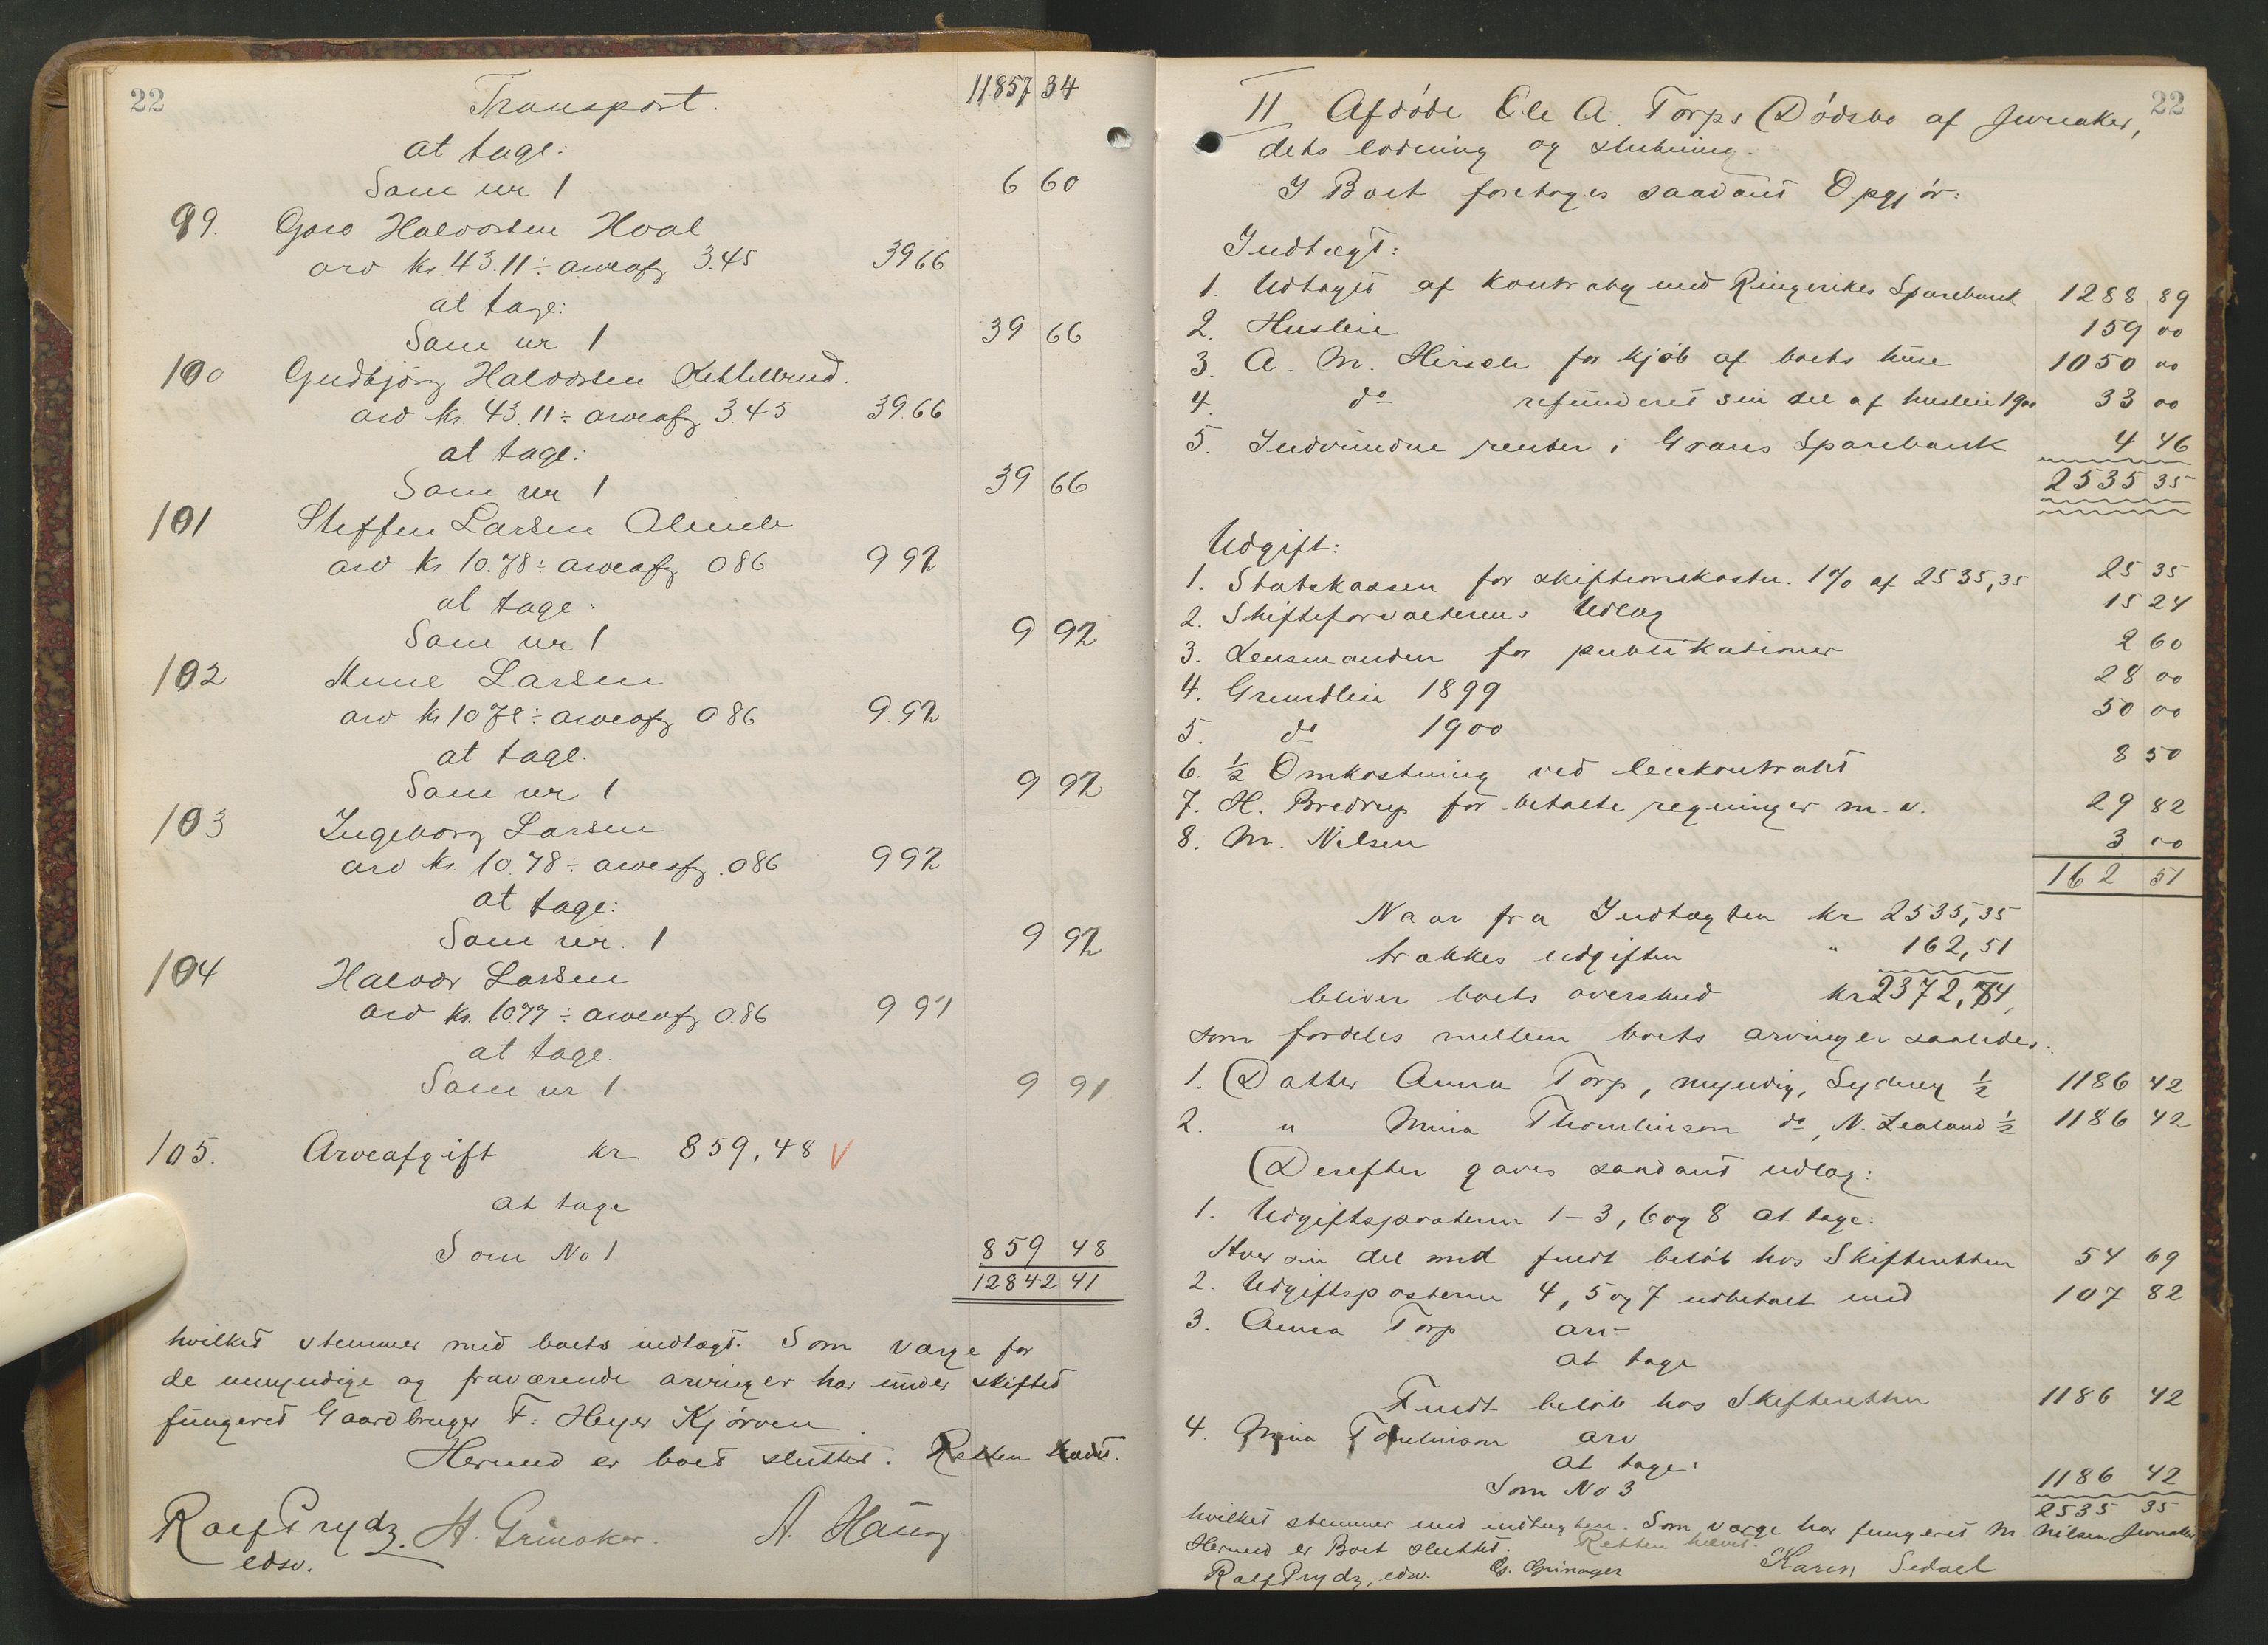 22
Transport. 11857 34
at tage:
Som nr 1 6 60
99. Goro Halvorsen Hval
arv kr. 43.11 ÷ arveafg 3.45 39 66
at tage:
Som nr 1 39 66
100 Gudbjörg Halvorsen Kittelsrud.
arv kr. 43.11 ÷ arveafg 3.45 39.66
at tage:
Som nr 1 39 66
101 Steffen Larsen
arv kr. 10.78 ÷ arveafg 086 9 92
at tage:
Som nr 1 9 92
102 Anne Larsen
arv kr 10 78 ÷ arveafg 086 9.92
at tage.
Som nr 1 9 92
103 Ingeborg Larsen
arv kr. 10.78 ÷ arveafg .086 9 92
at tage:
Som nr. 1 9 92
104 Halvor Larsen
arv kr. 10.77 ÷ arveafg 0.86 9 91
at tage.
Som nr 1 9 91
105. Arveafgift kr 859,48 V
at tage
Som No 1 859 48
12842 41
hvilket stemmer med boets indtægt. Som værge for
de umyndige og fraværende arvinger har under skiftet
fungeret Gaardbruger F. Heyer Kjörven.
Hermed er boet sluttet. Retten hævet.
Rolf Prydz. H. Grinaker. A. Haug
edsv.
22
11 Afdøde Ole A. Torps Dødsbo af Jevnaker,
dets lodning og slutning.
I Boet foretoges saadant Opgjör:
Indtægt:
1. Udtaget af kontrabog med Ringerikes Sparebank 1288 89
2. Husleie 159 00
3. A. M. Hirsch for kjöb af boets huse 1050 00
4. do refunderet sin del af husleie 1900 33 00
5. Indvundne renter i Grans Sparebank 4 46
2535 35
Udgift:
1. Statskassen for skifteomkostn. 1% af 2535,35 25 35
2. Skifteforvalterens Udlæg 15 24
3. Lensmanden for publikationer 2 60
4. Grundleie 1899 28 00
5. do 1900 50 00
6. ½ Omkostning ved leiekontrakt 8 50
7. H. Bredrup for betalte regninger m. v. 29 82
8. M. Nilsen 3 00
162 51
Naar fra Indtægten kr 2535,35
trækkes udgiften " 162,51
bliver boets overskud kr 2372,84,
som fordeles mellem boets arvinger saaledes:
1. Datter Anna Torp, myndig, Sydney ½ 1186 42
2. " Mina Thomlinson do, N. Zealand ½ 1186 42
Derefter gaves saadant udlæg:
1. Udgiftsposterne 1-3, 6 og 8 at tage:
Hver sin del med fuldt beløb hos Skifteretten 54 69
2. Udgiftsposterne 4, 5 og 7 udbetalt med 107 82
3. Anna Torp arv
at tage
Fuldt beløb hos Skifteretten 1186 42
4. Mina Tomlinson arv
at tage:
Som No 3 1186 42
2535 35
hvilket stemmer med indtægten. Som værge har fungeret M. Nilsen Jevnaker
Hermed er Boet sluttet. Retten hævet.
Rolf Prydz, edsv. G. Grinager Karen Sedael